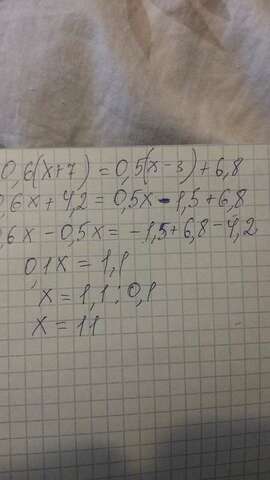 0,6(x+7) = 0,5(x-3)+6,8
0,6x+4,2=0,5x-1,5+6,8
0,6x-0,5x=-1,5+6,8-4,2
0,1x=1,1
x=1,1:0,1
x=11